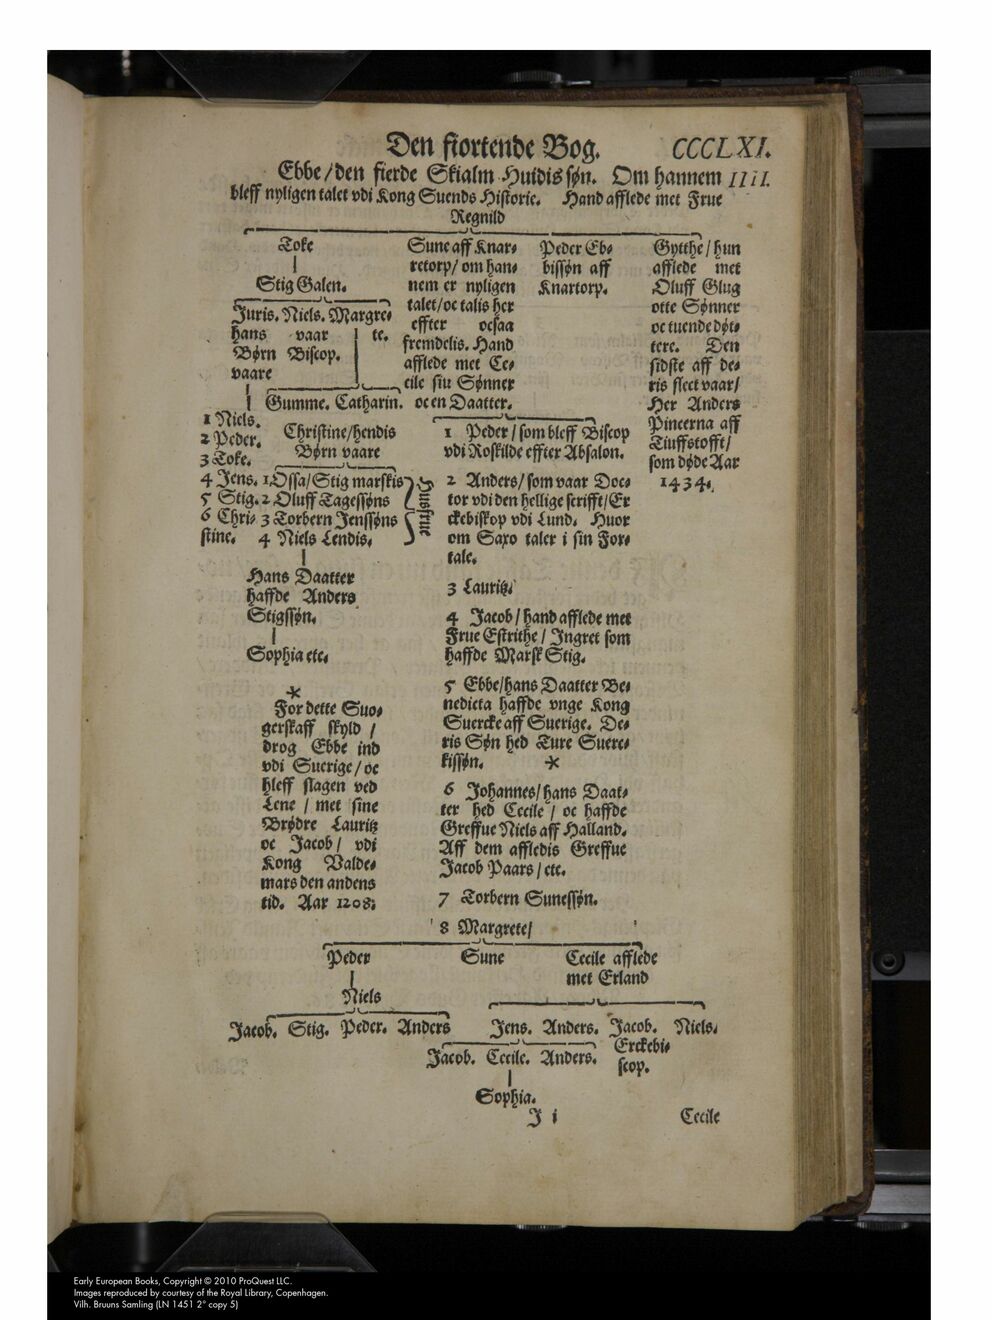 Den fiortende Bog. CCCLXI.
Ebbe/den fierde Skialm Huidis søn. Om hannem IIII.
bleff nyligen talet vdi Kong Suends Historie. Hand afflede met Frue
Regnild
Toke
Stig Galen.
Juris. Niels. Margre-
hans vaar te.
Børn Biscop.
vaare
Gumme. Catharin.
1 Niels.
2 Peder.
3 Toke.
4 Jens.
5 Stig.
6 Chri-
stine.
Christine/hendis
Børn vaare
1 Ossa/Stig marskis
2 Oluff Tagessøns
3 Torbern Jenssøns
Husfrue
4 Niels Lendis.
Hans Daatter
haffde Anders
Stigssøn.
Sophia etc.
*
For dette Suo-
gerskaff skyld /
drog Ebbe ind
vdi Suerige/oc
bleff slagen ved
Lene / met sine
Brødre Lauritz
oc Jacob/ vdi
Kong Valde-
mars den andens
tid. Aar 1208.
Sune aff Knar-
retorp/ om han-
nem er nyligen
talet/oc talis her
effter ocsaa
fremdelis. Hand
afflede met Ce-
cile siu Sønner
oc en Daatter.
1 Peder/som bleff Biscop
vdi Roskilde effter Absalon.
2 Anders/som vaar Doc-
tor vdi den hellige scrifft/Er
ckebiskop vdi Lund. Huor
om Saxo taler i sin For-
tale.
3 Lauritz.
4 Jacob/hand afflede met
Frue Estrithe/ Ingret som
haffde Marsk Stig.
5 Ebbe/hans Daatter Be-
nedicta haffde vnge Kong
Suercke aff Suerige. De-
ris Søn hed Ture Suerc-
kissøn. *
6 Johannes/hans Daat-
ter hed Cecile / oc haffde
Greffue Niels aff Halland.
Aff dem affledis Greffue
Jacob Paars/etc.
7 Torbern Sunessøn.
8 Margrete/
Peder Eb-
bissøn aff
Knartorp.
Gytthe/hun
afflede met
Oluff Glug
otte Sønner
oc tuende døt-
tere. Den
sidste aff de-
ris slect vaar/
Her Anders
Pincerna aff
Tiuffstofft/
som døde Aar
1434.
Peder Sune Cecile afflede
met Erland
Niels
Jacob. Stig. Peder. Anders
Jens. Anders. Jacob. Niels.
Erckebi-
scop.
Jacob. Cecile. Anders.
Sophia.
J i Cecile
Early European Books, Copyright © 2010 ProQuest LLC.
Images reproduced by courtesy of the Royal Library, Copenhagen.
Vilh. Bruuns Samling (LN 1451 2° copy 5)